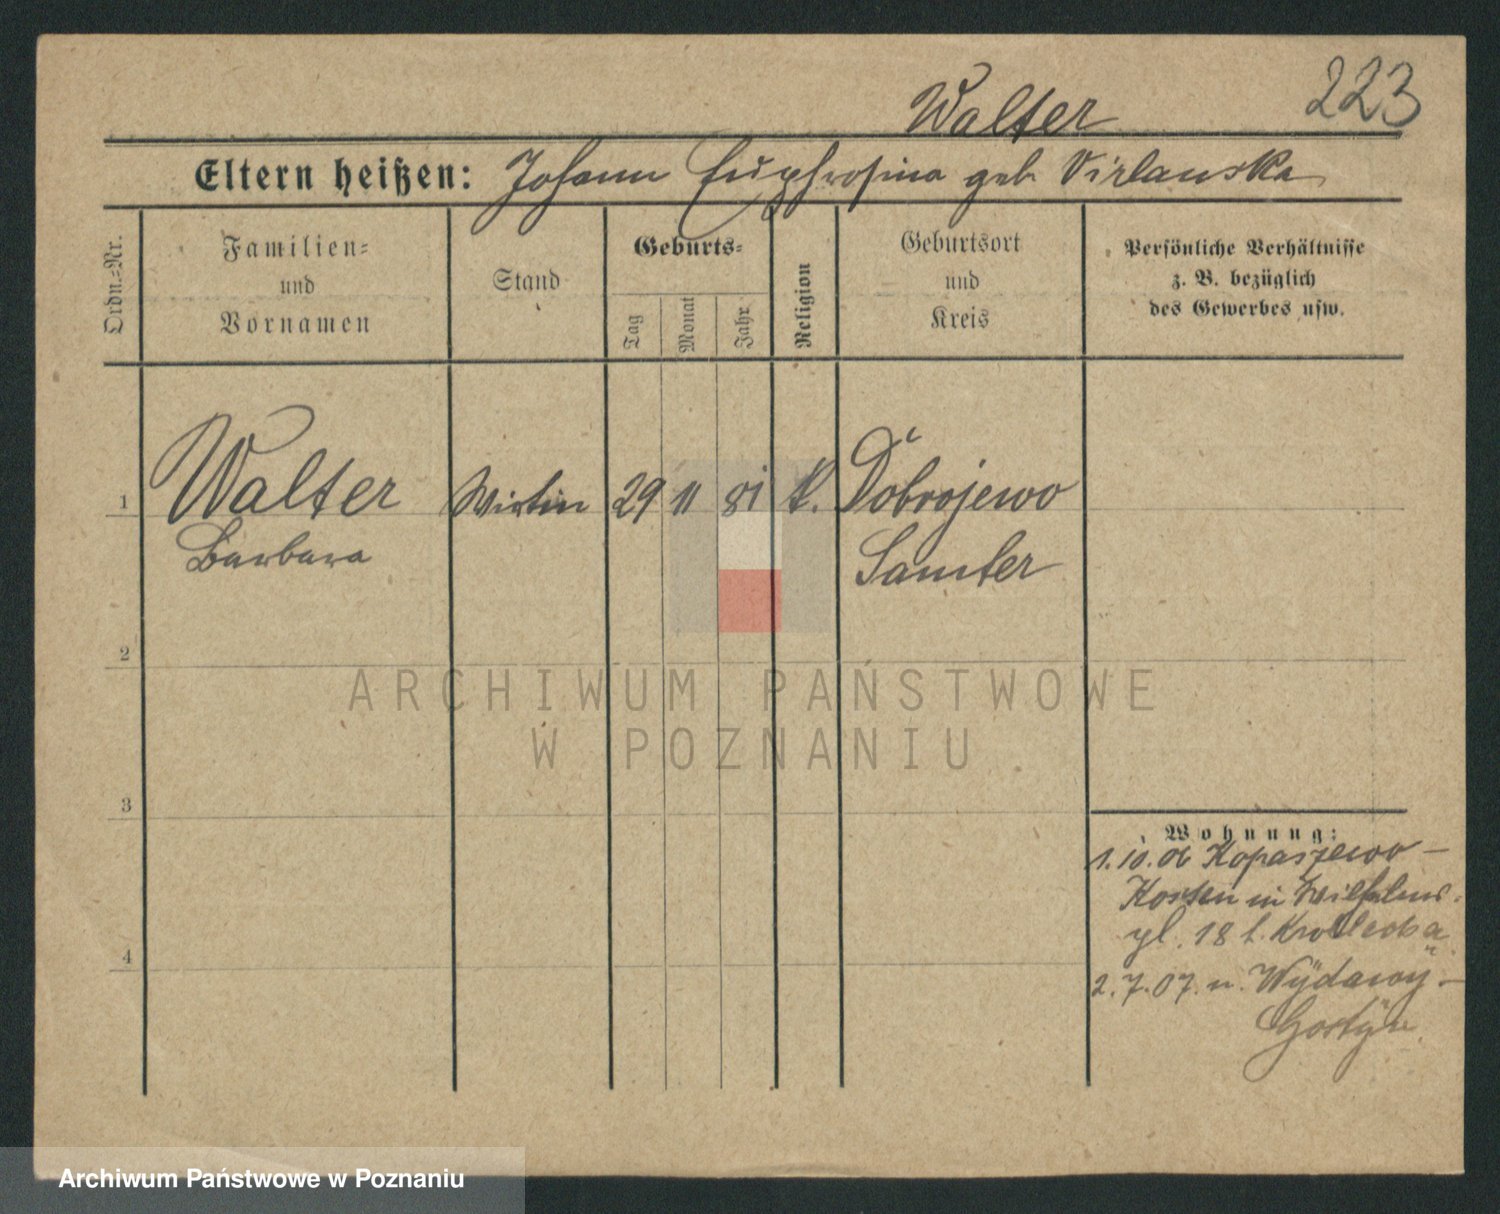 223
Walter
Eltern heißen: Johann Euphrosina geb Virlanska
Ordn.=Nr.
Familien=
und
Vornamen
Stand
Geburts=
Tag
Monat
Jahr
Religion
Geburtsort
und
Kreis
Persönliche Verhältnisse
z. B. bezüglich
des Gewerbes usw.
1 Walter Wirtin 29 11 81 k. Dobrojewo
Barbara Samter
2
3
4
Wohnung:
1.10.06 Kopaszewo –
Kosten in Wilhelms
pl. 18 b.
2.7.07. n. Wydawy –
Gostyn
ARCHIWUM PAŃSTWOWE
W POZNANIU
Archiwum Państwowe w Poznaniu